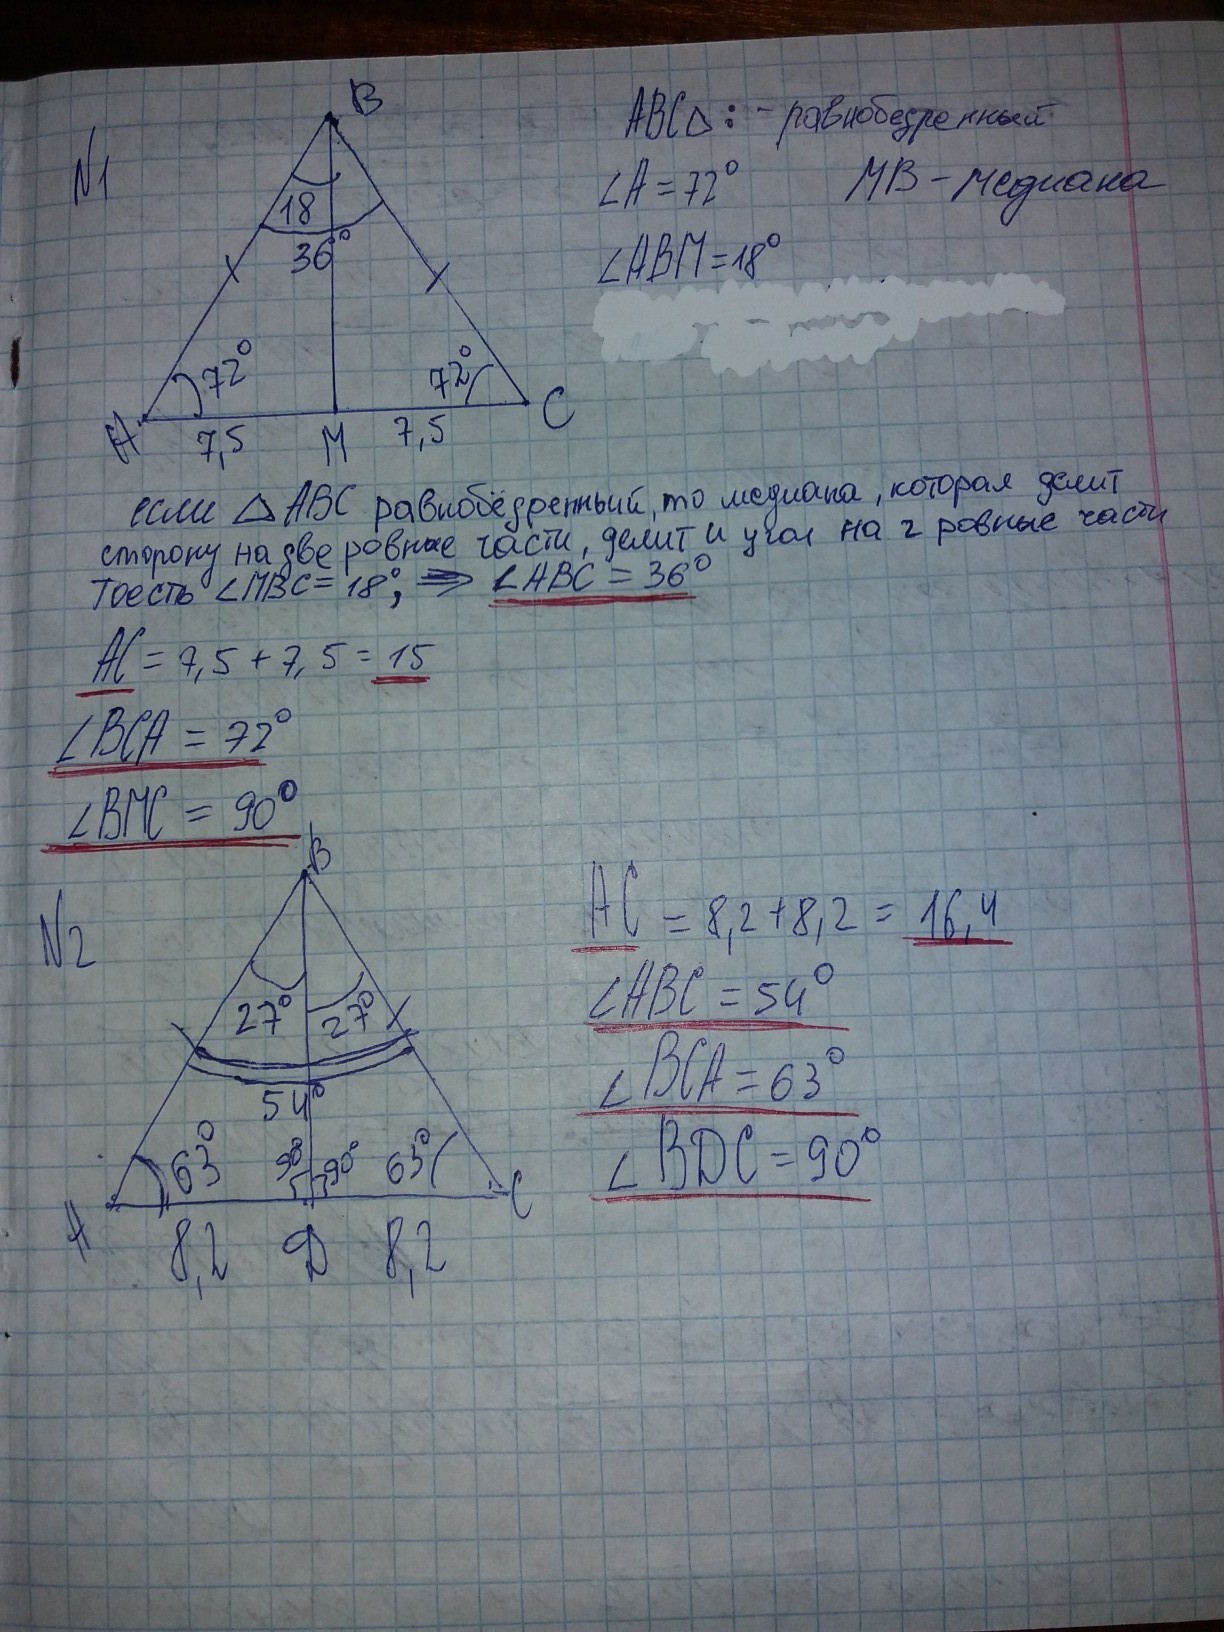 N1
B
18
36°
72°
72°
A
7,5
M
7,5
C
ABC△: - равнобедренный
∠A = 72° MB - медиана
∠ABM = 18°
если △ABC равнобёдренный, то медиана, которая делит
сторону на две ровные части, делит и угол на 2 ровные части
Тоесть ∠MBC = 18°, ⇒ ∠ABC = 36°
AC = 7,5 + 7,5 = 15
∠BCA = 72°
∠BMC = 90°
N2
B
27° 27°
54°
63° 90° 90° 63°
A
8,2 D 8,2
C
AC = 8,2 + 8,2 = 16,4
∠ABC = 54°
∠BCA = 63°
∠BDC = 90°